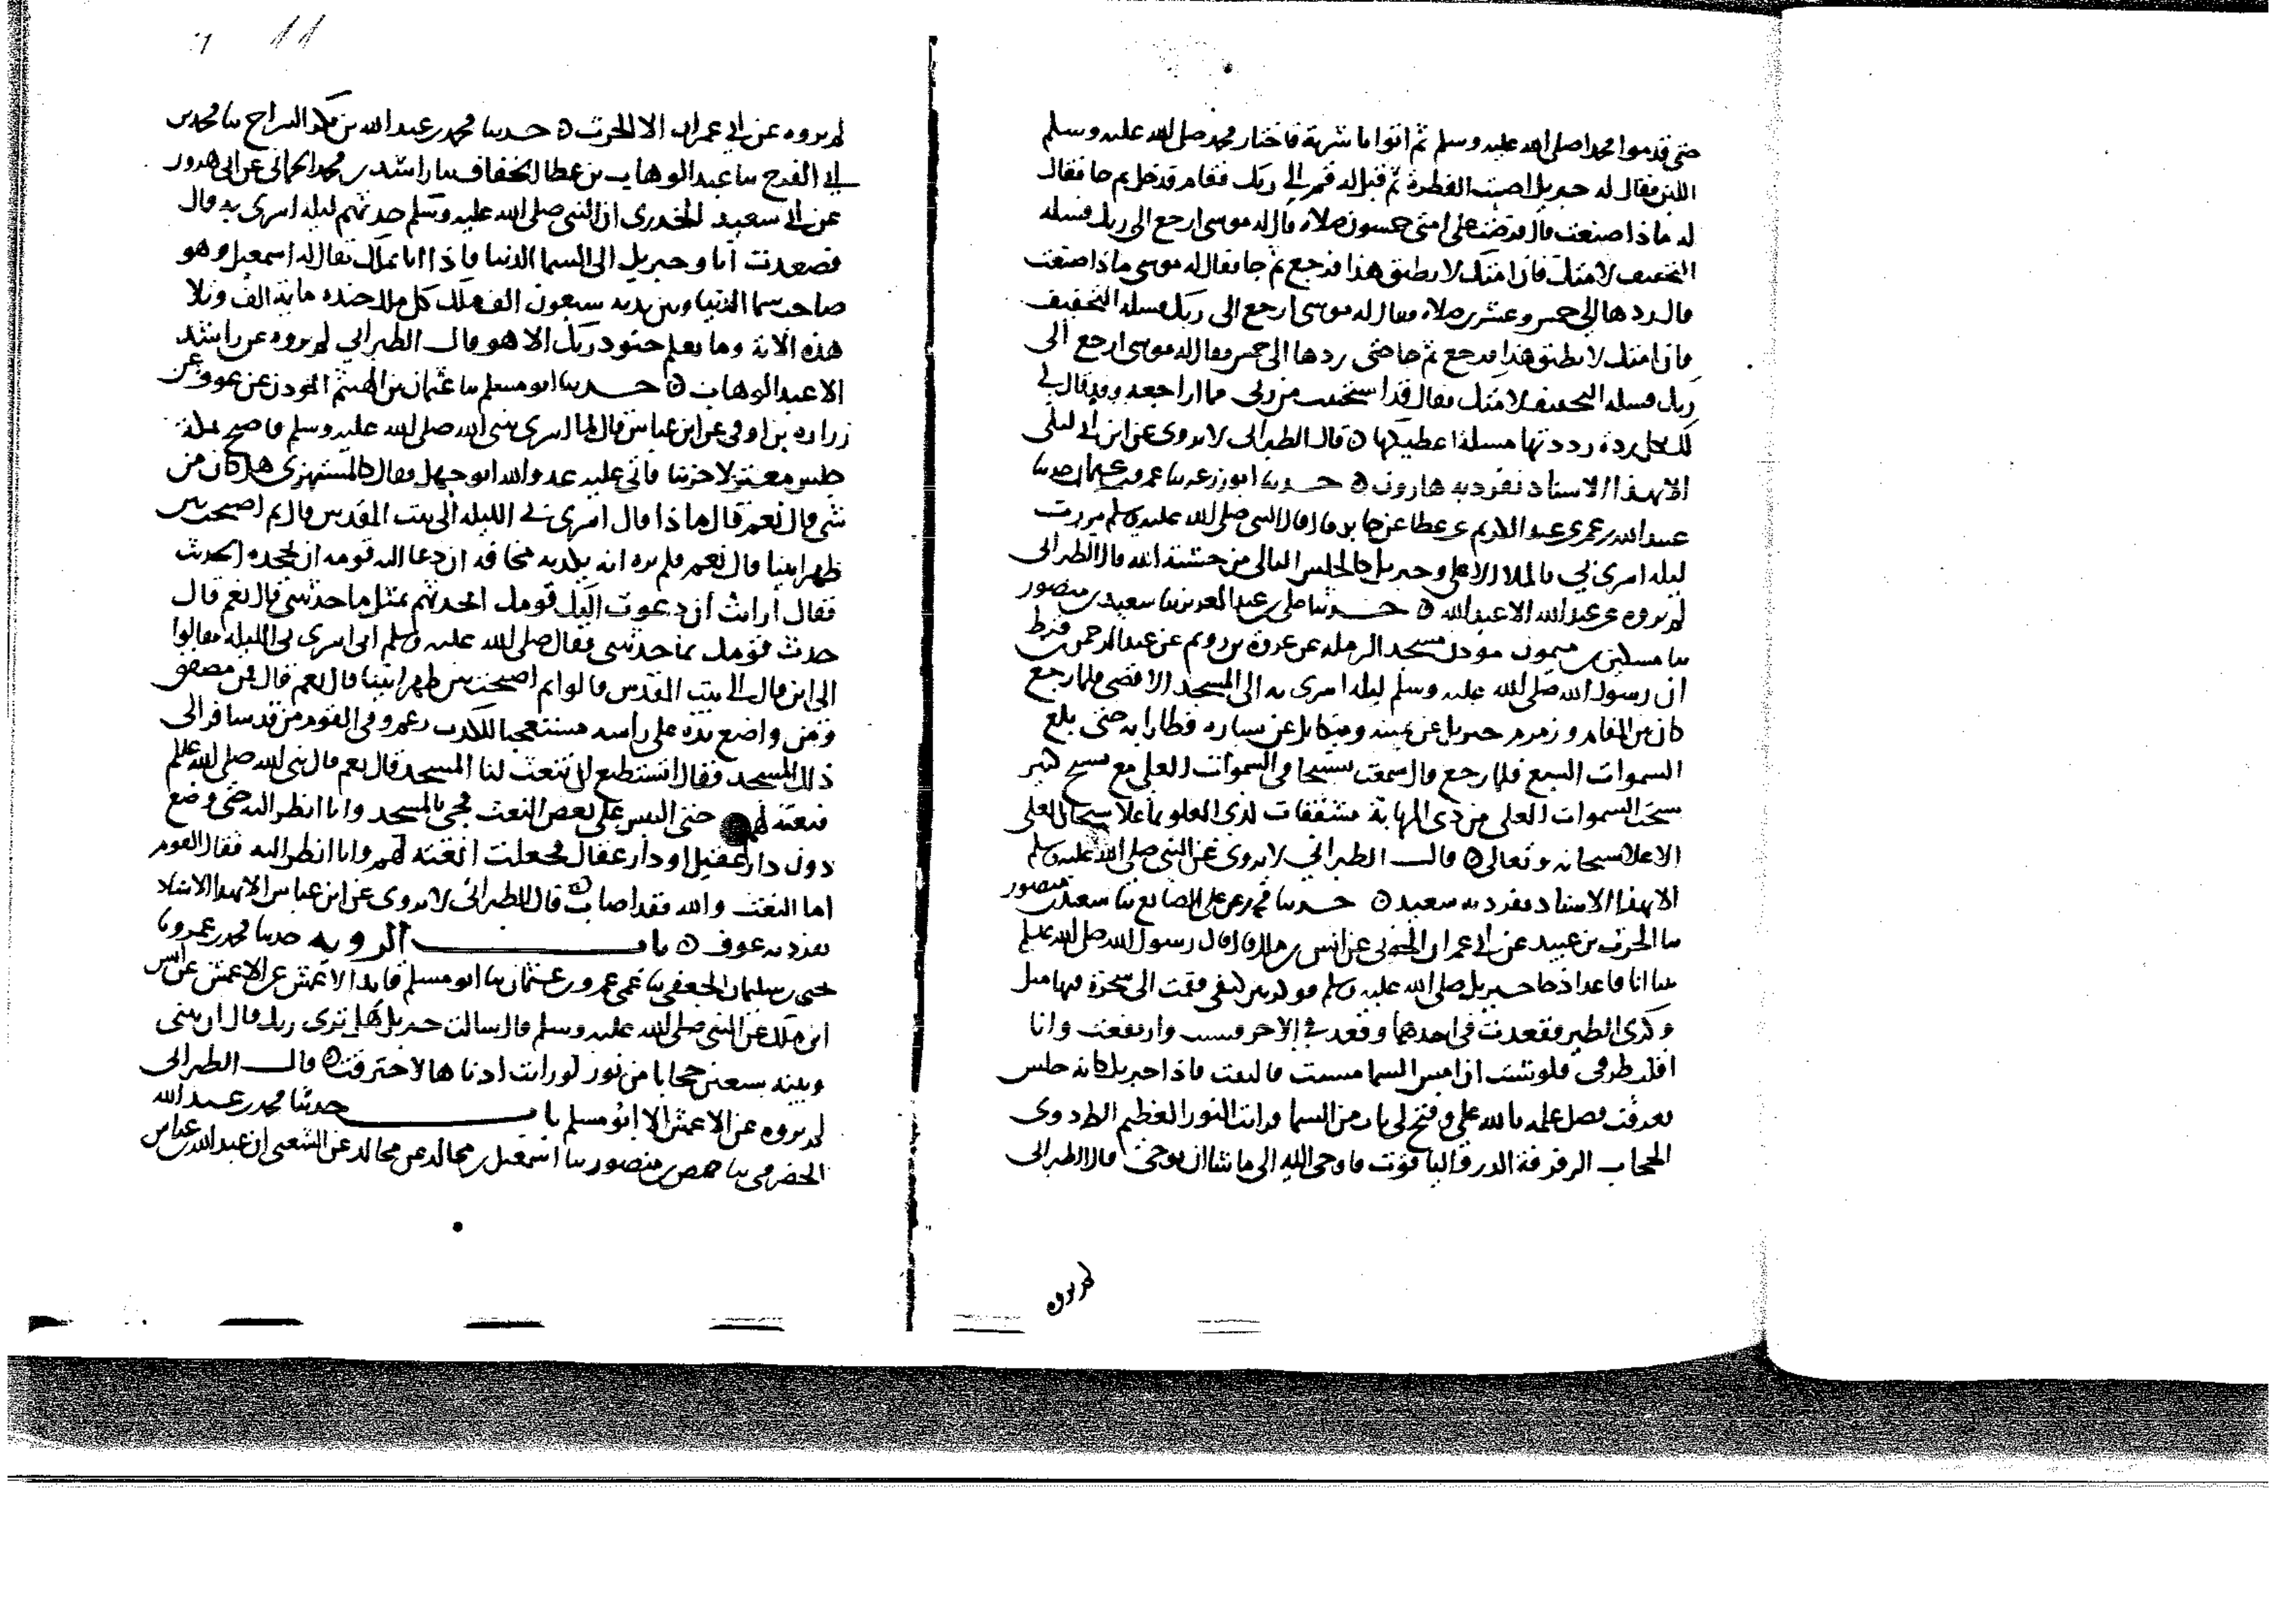 حتى قدموا محمدا صلى الله عليه وسلم ثم اتوا باشربة فاختار محمد صلى الله عليه وسلم
اللبن فقال له جبريل اصبت الفطرة ثم قيل له قم الى ربك فقام فدخل ثم جا فقال
له ماذا صنعت قال فرضت على امتى خمسون صلاه قال له موسى ارجع الى ربك فسله
التخفيف لامتك فان امتك لا يطيق هذا فرجع ثم جا فقال له موسى ماذا صنعت
قال ردها الى خمس وعشرين صلاه فقال له موسى ارجع الى ربك فسله التخفيف
فان امتك لا يطيق هذا فرجع ثم جا حتى ردها الى خمس فقال له موسى ارجع الى
ربك فسله التخفيف لامتك فقال قد استحييت من ربى مما اراجعه وقد قال لى
لك بكل رده رددتها مسلة اعطيكها ه قال الطبرانى لا يروى عن ابن ابى ليلى
الا بهذا الاسناد تفرد به هارون ه حدثنا ابو زرعه نا عمرو بن عثمان حدثنا
عبيد الله بن عمرو عن عبد الكريم عن عطا عن جابر قال قال النبى صلى الله عليه وسلم مررت
ليله اسرى بى بالملا الاعلى وجبريل كالحلس البالى من خشية الله قال الطبرانى
لم يروه عن عبد الله الا عبيد الله ه حدثنا على بن عبد العزيز نا سعيد بن منصور
نا مسكين بن ميمون موذن مسجد الرمله عن عروة بن رويم عن عبد الرحمن بن قرط
ان رسول الله صلى الله عليه وسلم ليله اسرى به الى المسجد الاقصى فلما رجع
كان بين المقام وزمزم جبريل عن يمينه وميكايل عن يساره فطارا به حتى بلغ
السموات السبع فلما رجع قال سمعت تسبيحا فى السموات العلى مع تسبيح كثير
سبحت السموات العلى من ذى المهابة مشفقات لذى العلو بما علا سبحان العلى
الاعلا سبحانه وتعالى ه قال الطبرانى لا يروى عن النبى صلى الله عليه وسلم
الا بهذا الاسناد تفرد به سعيد ه حدثنا محمد بن على الصايغ نا سعيد بن منصور
نا الحرث بن عبيد عن ابى عمران الجونى عن انس بن ملك قال قال رسول الله صلى الله عليه وسلم
بينا انا قاعد اذ جا جبريل صلى الله عليه وسلم فوكز بين كتفى فقمت الى شجرة فيها مثل
وكرى الطير فقعدت فى احدهما وقعد فى الاخر فسمت وارتفعت وانا
اقلب طرفى فلو شئت ان امس السما مسست فالتفت فاذا جبريل كانه حلس
فعرفت فضل علمه بالله على وفتح لى باب من السما ورايت النور العظيم الط دوى
الحجاب الرفرفة الدر والياقوت فاوحى الله الى ما شا ان يوحى قال الطبرانى
لم يروه
11
لم يروه عن ابى عمران الا الحرث ه حدثنا محمد بن عبد الله بن بكر السراج نا محمد بن
ابى الفرج نا عبد الوهاب بن عطا الخفاف نا راشد بن محمد الحمانى عن ابى هرون
عن ابى سعيد الخدرى ان النبى صلى الله عليه وسلم حدثهم ليله اسرى به قال
فصعدت انا وجبريل الى السما الدنيا فاذا انا بملك يقال له اسمعيل وهو
صاحب سما الدنيا وبين يديه سبعون الف ملك كل ملك جنده مايه الف وتلا
هذه الاية وما يعلم جنود ربك الا هو قال الطبرانى لم يروه عن راشد
الا عبد الوهاب ه حدثنا ابو مسلم نا عثمان بن الهيثم الموذن عن عوف عن
زراره بن اوفى عن ابن عباس قال لما اسرى بنبى الله صلى الله عليه وسلم فاصبح بمكة
جلس معتزلا حزينا فاتى عليه عدو الله ابو جهل فقال كالمستهزى هل كان من
شى قال نعم قال ماذا قال اسرى بى الليله الى بيت المقدس قال ثم اصبحت بين
ظهرانينا قال نعم فلم يره انه يكذبه مخافه ان دعا اليه قومه ان يجحده الحديث
فقال ارايت ان دعوت اليك قومك اتحدثهم بمثل ما حدثتنى قال نعم قال
حدث قومك بما حدثتنى فقال صلى الله عليه وسلم انى اسرى بى الليله فقالوا
الى اين قال الى بيت المقدس قالوا ثم اصبحت بين ظهرانينا قال نعم قال فمن مصفق
ومن واضع يده على راسه مستعجبا للكذب زعم وفى القوم من قد سافر الى
ذلك المسجد فقال اتستطيع ان تنعت لنا المسجد قال نعم قال نبى الله صلى الله عليه وسلم
فنعته لهم حتى التبس على بعض النعت فجى بالمسجد وانا انظر اليه حتى وضع
دون دار عقيل او دار عقال فجعلت انعته لهم وانا انظر اليه فقال القوم
اما النعت والله فقد اصاب ه قال الطبرانى لا يروى عن ابن عباس الا بهذا الاسناد
تفرد به عوف ه باب الرويه حدثنا محمد بن عمرو نا
يحيى بن سليمان الجعفى نا عمى عمرو بن عثمان نا ابو مسلم قايد الاعمش عن الاعمش عن انس
ابن ملك عن النبى صلى الله عليه وسلم قال سالت جبريل هل ترى ربك قال ان بينى
وبينه سبعين حجابا من نور لو رايت ادناها لاحترقت ه قال الطبرانى
لم يروه عن الاعمش الا ابو مسلم باب حدثنا محمد بن عبد الله
الحضرمى نا جمهور بن منصور نا اسمعيل بن مجالد عن مجالد عن الشعبى ان عبد الله بن عباس